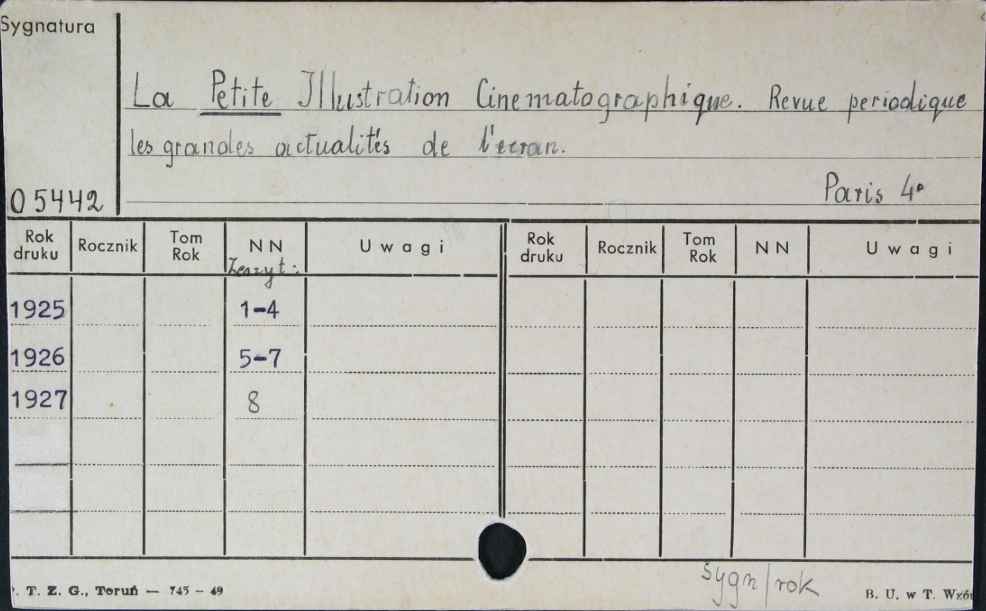 Sygnatura
La Petite Illustration Cinematographique. Revue periodique
les grandes actualités de l'ecran.
05442
Paris 4°
Rok druku Rocznik Tom Rok NN Uwagi Rok druku Rocznik Tom Rok NN Uwagi
Zeszyt:
1925 1-4
1926 5-7
1927 8
sygn/rok
. T. Z. G., Toruń — 745 – 49 B. U. w T. Wzó